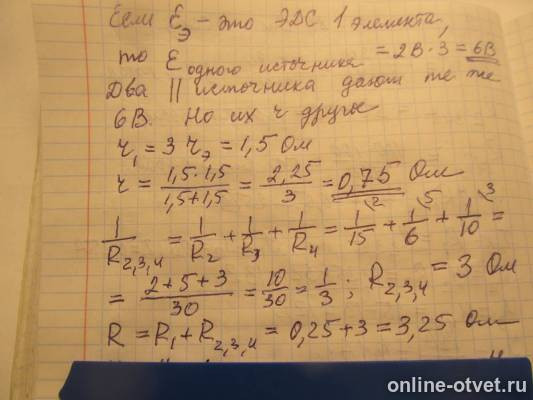 Если Ɛэ - это ЭДС 1 элемента,
то Ɛ одного источника = 2В·3 = 6В
Два || источника дают те же
6В. Но их r другое
r₁ = 3 rэ = 1,5 Ом
r = (1,5·1,5)/(1,5+1,5) = 2,25/3 = 0,75 Ом
1/R₂,₃,₄ = 1/R₂ + 1/R₃ + 1/R₄ = 1/15 \2 + 1/6 \5 + 1/10 \3 =
= (2+5+3)/30 = 10/30 = 1/3 ; R₂,₃,₄ = 3 Ом
R = R₁ + R₂,₃,₄ = 0,25 + 3 = 3,25 Ом
online-otvet.ru